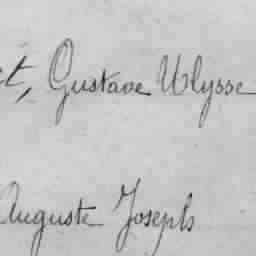 et, Gustave Ulysse
Auguste Joseph